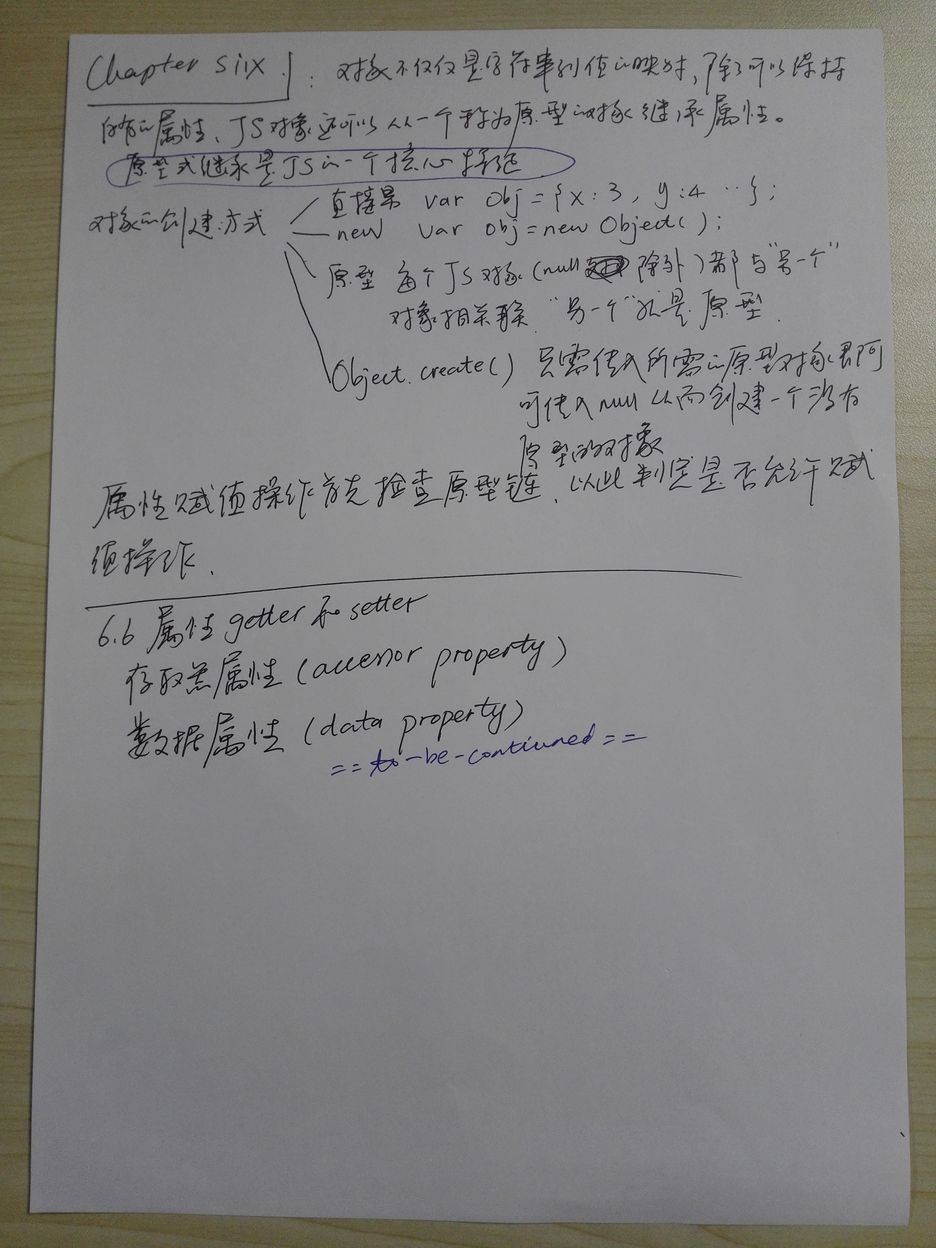 Chapter siix : 对象不仅仅是字符串到值的映射,除了可以保持
自有的属性、JS对象还可以从一个称为原型的对象继承属性。
原型式继承是JS的一个核心特征
对象的创建方式
直接量 var obj = {x:3, y:4 …};
new var obj = new Object();
原型 每个JS对象(null 除外)都与"另一个"
对象相关联 "另一个"就是原型.
Object.create() 只需传入所需的原型对象即可
可传入null 从而创建一个没有
原型的对象
属性赋值操作首先检查原型链,以此判定是否允许赋
值操作.
6.6 属性getter和setter
存取器属性(accessor property)
数据属性(data property)
==to-be-contiuned==